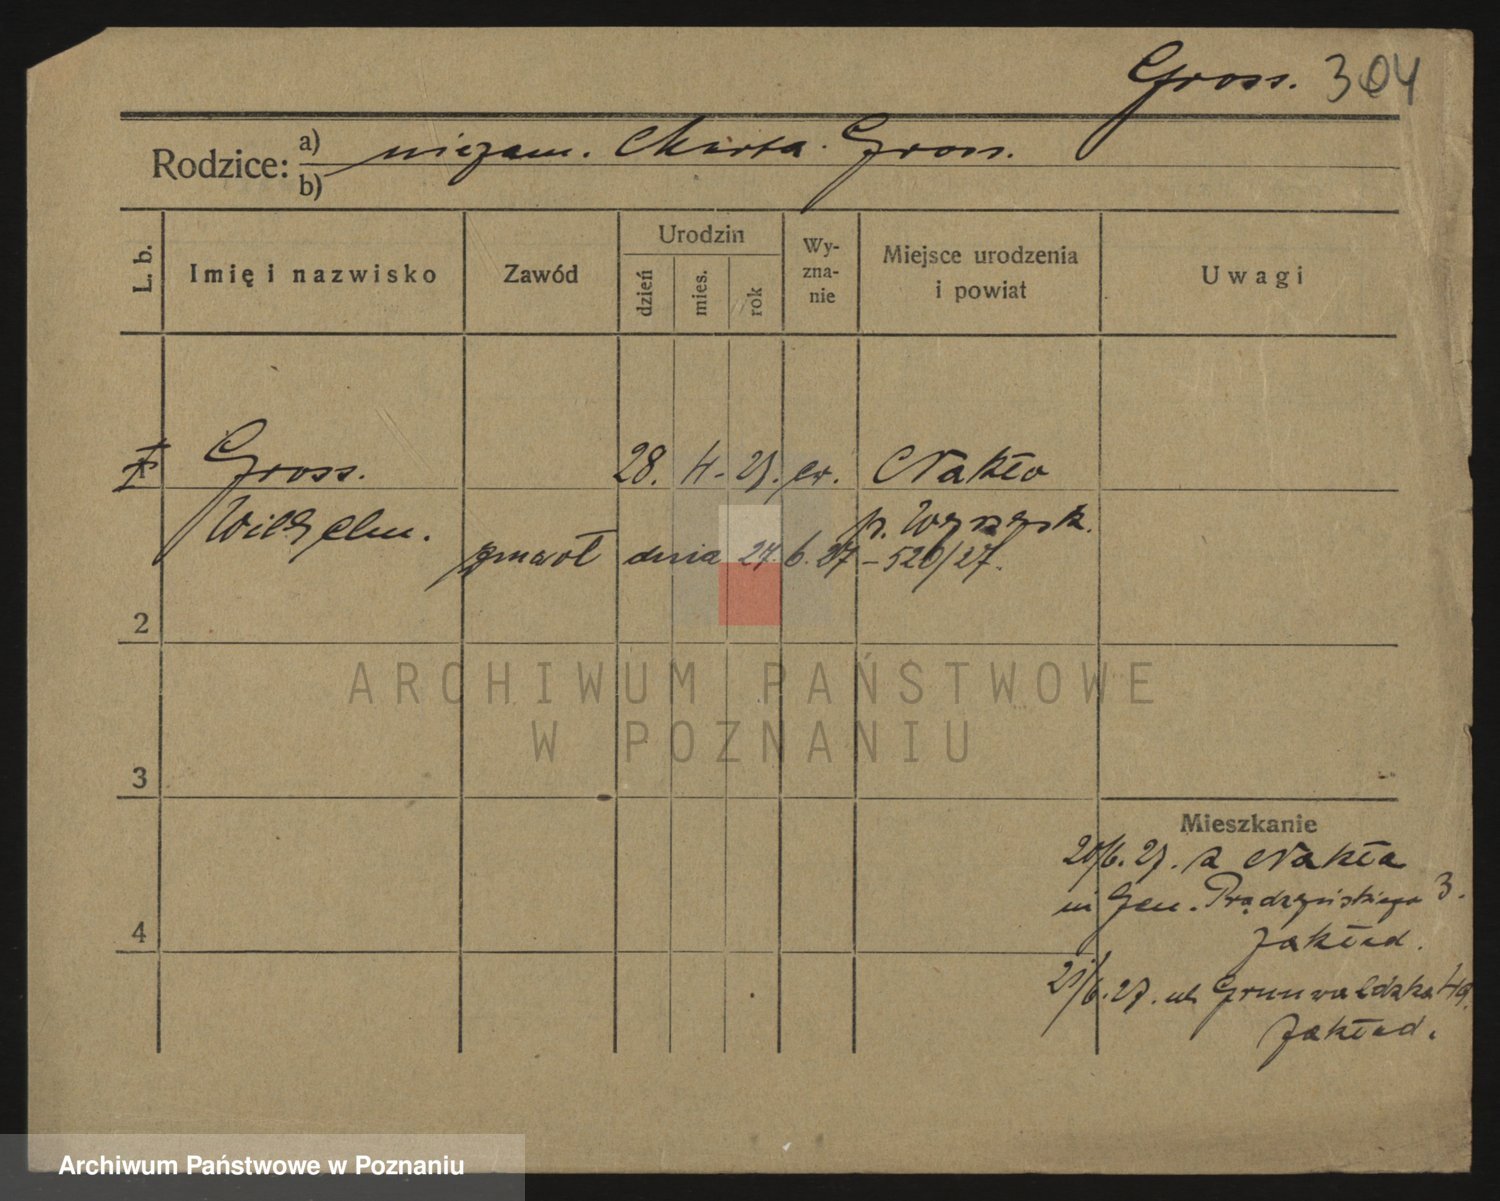 Gross. 304
Rodzice: a) niezam. Marta Gross.
b)
L. b.
Imię i nazwisko
Zawód
Urodzin
dzień
mies.
rok
Wy-
zna-
nie
Miejsce urodzenia
i powiat
Uwagi
Gross. 28. 4. 27. ew. Nakło
Wilhelm. p. Wyrzysk.
zmarł dnia 27. 6. 27 - 520/27.
2
3
4
Mieszkanie
20/6. 27. z Nakła
Gen. Prądzyńskiego 3.
Zakład.
21/6. 27. ul. Grunwaldzka 49.
Zakład.
ARCHIWUM PAŃSTWOWE
W POZNANIU
Archiwum Państwowe w Poznaniu